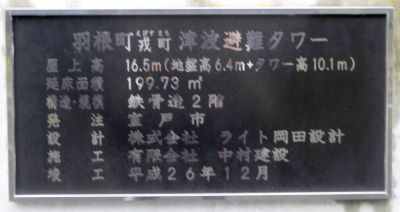 羽根町戎町津波避難タワー
屋上高 16.5m(地盤高6.4m+タワー高10.1m)
延床面積 199.73㎡
構造・規模 鉄骨造2階
発注 室戸市
設計 株式会社 ライト岡田設計
施工 有限会社 中村建設
竣工 平成26年12月